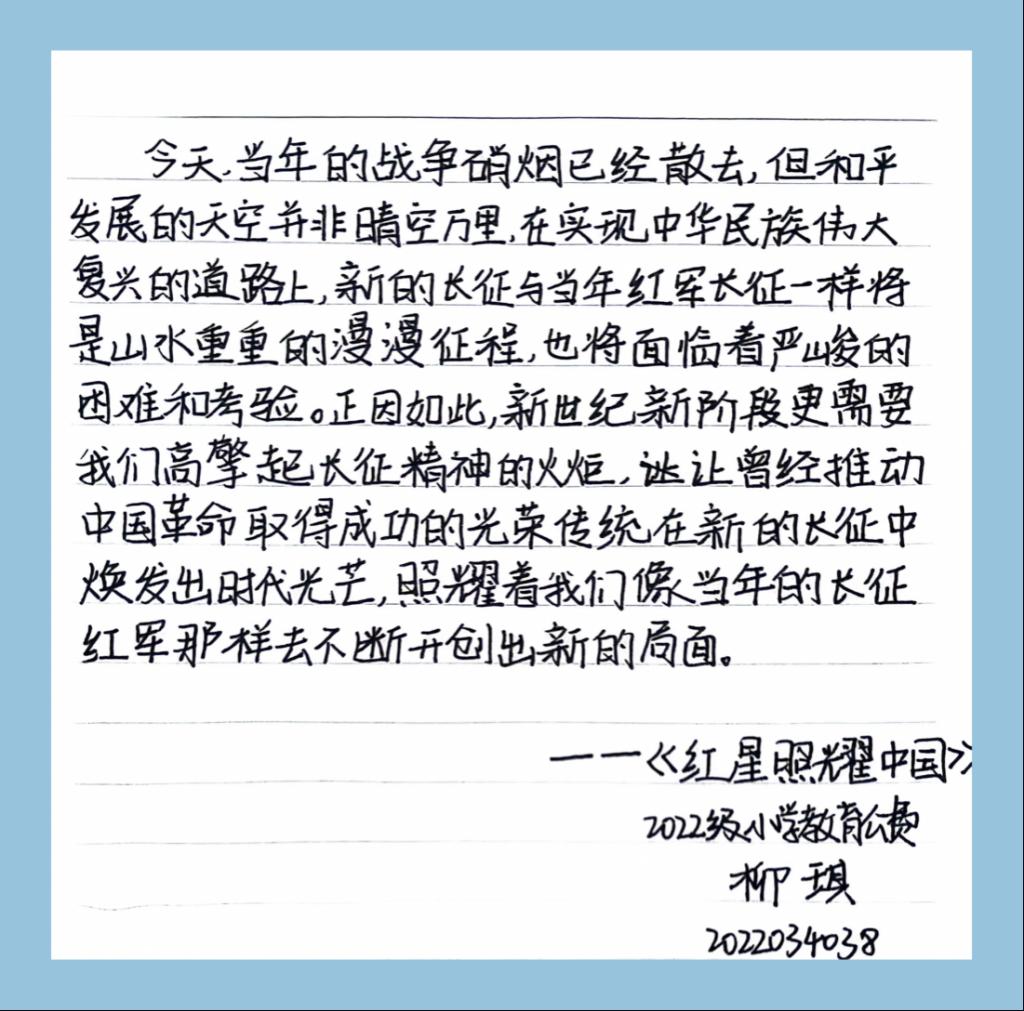 今天,当年的战争硝烟已经散去,但和平
发展的天空并非晴空万里,在实现中华民族伟大
复兴的道路上,新的长征与当年红军长征一样将
是山水重重的漫漫征程,也将面临着严峻的
困难和考验。正因如此,新世纪新阶段更需要
我们高擎起长征精神的火炬,让曾经推动
中国革命取得成功的光荣传统在新的长征中
焕发出时代光芒,照耀着我们像当年的长征
红军那样去不断开创出新的局面。
——《红星照耀中国》
2022级小学教育公费
柳琪
2022034038